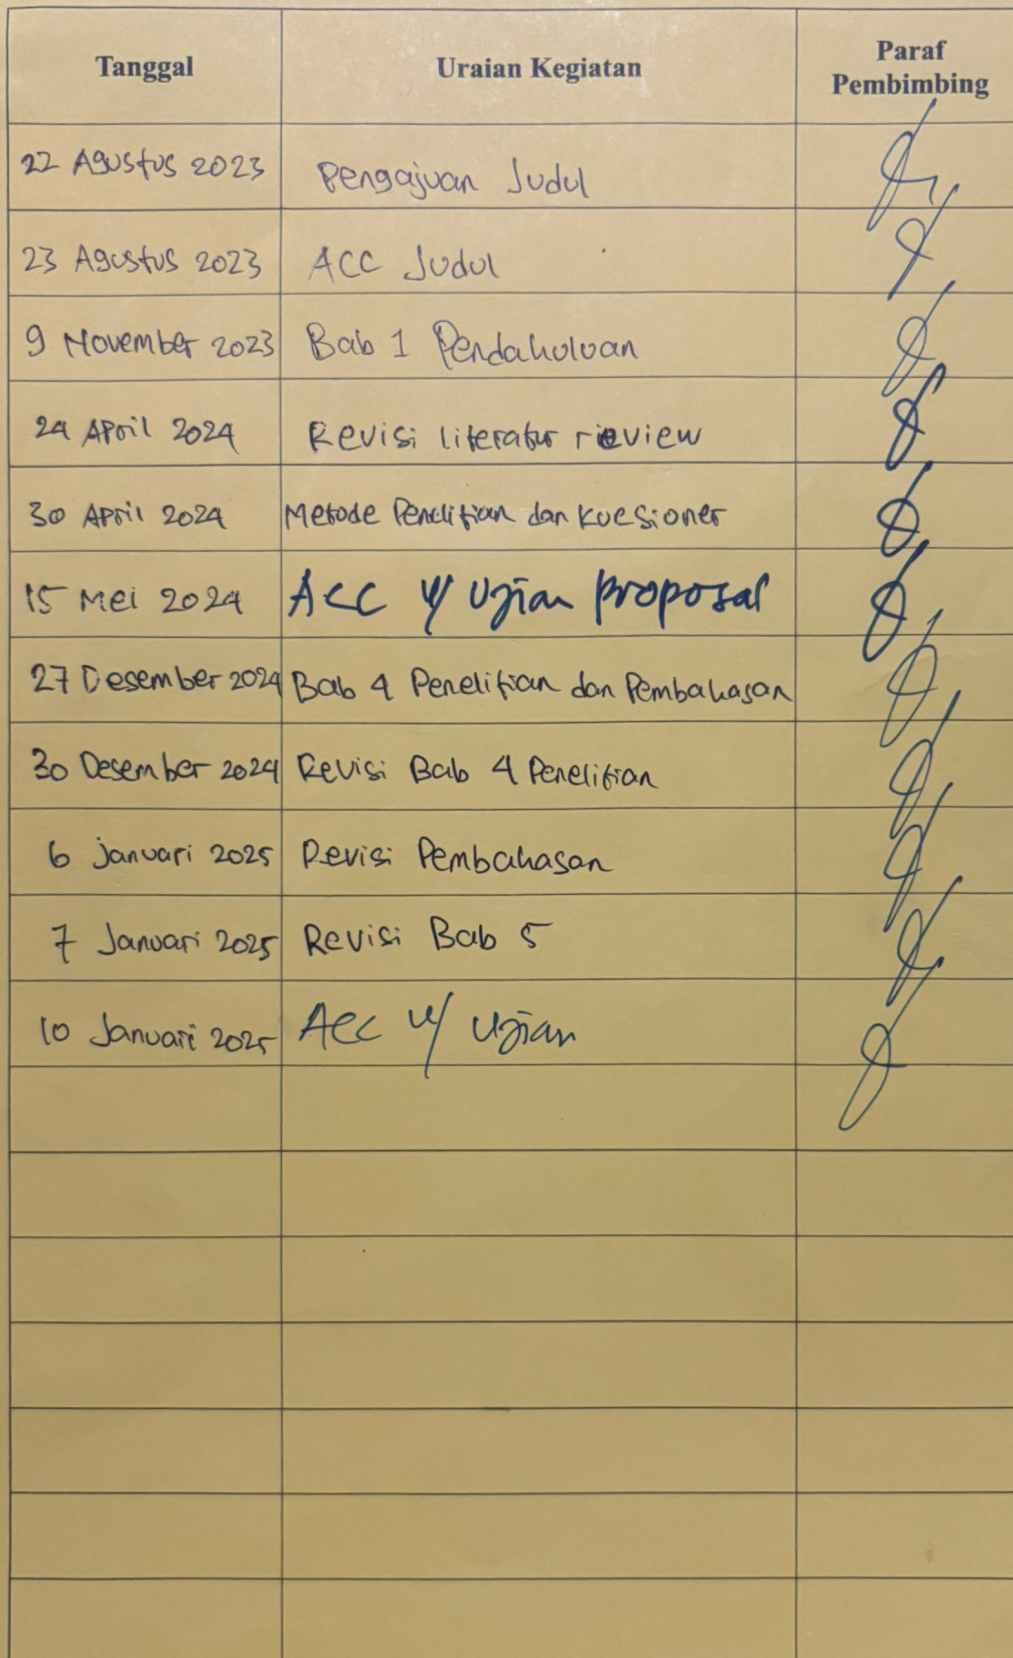 Tanggal Uraian Kegiatan Paraf Pembimbing
22 Agustus 2023 Pengajuan Judul
23 Agustus 2023 ACC Judul
9 November 2023 Bab 1 Pendahuluan
24 April 2024 Revisi literatur rieview
30 April 2024 Metode Penelitian dan Kuesioner
15 Mei 2024 Acc u/ Ujian proposal
27 Desember 2024 Bab 4 Penelitian dan Pembahasan
30 Desember 2024 Revisi Bab 4 Penelitian
6 Januari 2025 Revisi Pembahasan
7 Januari 2025 Revisi Bab 5
10 Januari 2025 Acc u/ Ujian